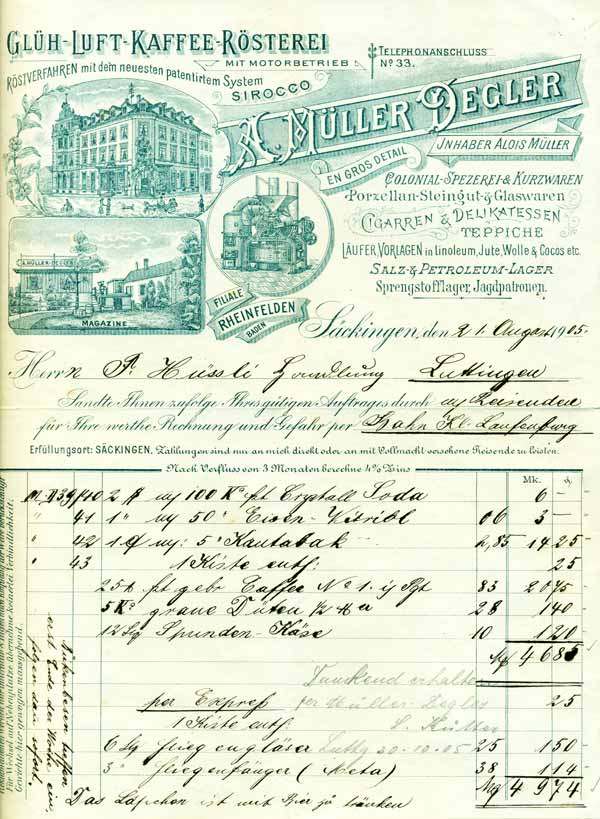 GLÜH-LUFT-KAFFEE-RÖSTEREI
MIT MOTORBETRIEB
TELEPHONANSCHLUSS
No 33.
RÖSTVERFAHREN mit dem neuesten patentirtem System
SIROCCO
A. MÜLLER DEGLER
INHABER ALOIS MÜLLER
EN GROS DETAIL
COLONIAL-SPEZEREI- & KURZWAREN
Porzellan-Steingut- & Glaswaren
CIGARREN & DELIKATESSEN
TEPPICHE
LÄUFER, VORLAGEN in Linoleum, Jute, Wolle & Cocos etc.
SALZ- & PETROLEUM-LAGER
Sprengstofflager, Jagdpatronen.
A. MÜLLER-DEGLER
MAGAZINE
FILIALE
RHEINFELDEN
BADEN
Säckingen, den 21. August 1905.
Herrn P. Hüssli Handlung Luttingen
Sandte Ihnen zufolge Ihres gütigen Auftrages durch m/ Reisenden
für Ihre werthe Rechnung und Gefahr per Bahn Kl. Laufenburg
Erfüllungsort: SÄCKINGEN. Zahlungen sind nur an mich direkt oder an mit Vollmacht versehene Reisende zu leisten.
Nach Verfluss von 3 Monaten berechne 4% Zins
Mk. ₰
40 2 100 Ko Crystall Soda 6 -
" 41 1 " 50 " Eisen-Vitriol 06 3 -
" 42 5 Kautabak 2,85 14 25
" 43 1 Kiste enth:
25
25 gebr Caffee No 1. 83 20 75
5 Ko graue Düten 28 1 40
12 Spunden-Käse 10 1 20
46 85
Dankend erhalten
per Express per Müller-Degler 25
1 Kiste enth:
6 Fliegengläser Luttg 20.10.05 25 1 50
3 " Fliegenfänger (Meta) 38 1 14
49 74
Das Läpchen ist mit Bier zu tränken
Für Wechsel auf Nebenplätze übernehme keinerlei Verbindlichkeit.
Gewichte hier gewogen massgebend.
treffen
erst Ende der Woche ein,
folgen dann sofort.